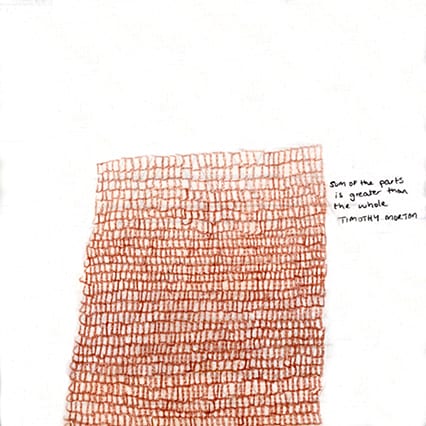 sum of the parts
is greater than
the whole
TIMOTHY MORTON